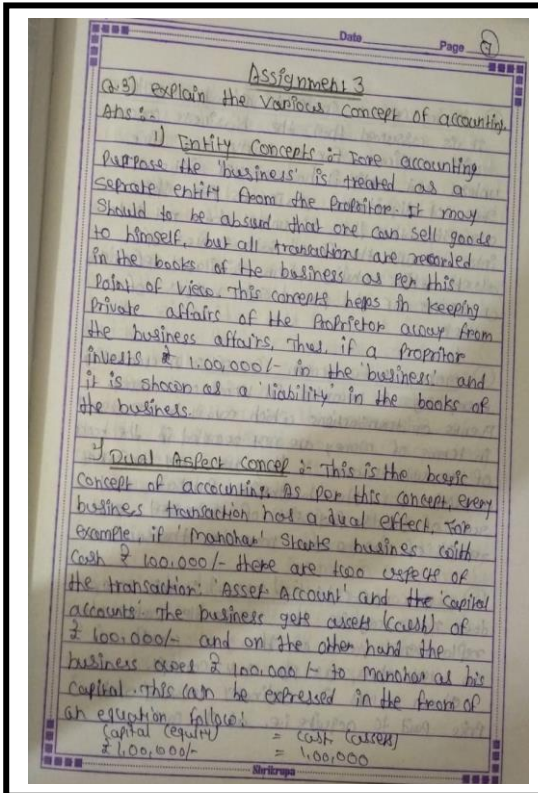 Date Page 9
Assignment 3
Q.3) explain the Various concept of accounting.
Ans :-
1) Entity Concepts :- Fore accounting
Purpose the 'business' is treated as a
Seprate entity from the Propritor. It may
Should to be absurd that one can sell goods
to himself, but all transactions are recorded
in the books of the business as Per this
Point of View. This concepts helps in keeping
Private affairs of the Proprietor away from
the business affairs. Thus, if a propritor
invests ₹ 1,00,000/- in the 'business' and
it is shown as a 'liability' in the books of
the business.
Dual Aspect concep :- This is the basic
Concept of accounting. As per this concept, every
business transaction has a dual effect. For
example, if 'Manohar' Starts busines with
Cash ₹ 100,000/- there are two aspects of
the transaction: 'Asset Account' and the 'Capital
accounts. The business gets assets (cash) of
₹ 100,000/- and on the other hand the
business owes ₹ 100,000/- to manohar as his
Capital. This can be expressed in the from of
an equation follow:
Capital (equity) = cash (assets)
₹ 1,00,000/- = 1,00,000
Shrikrupa